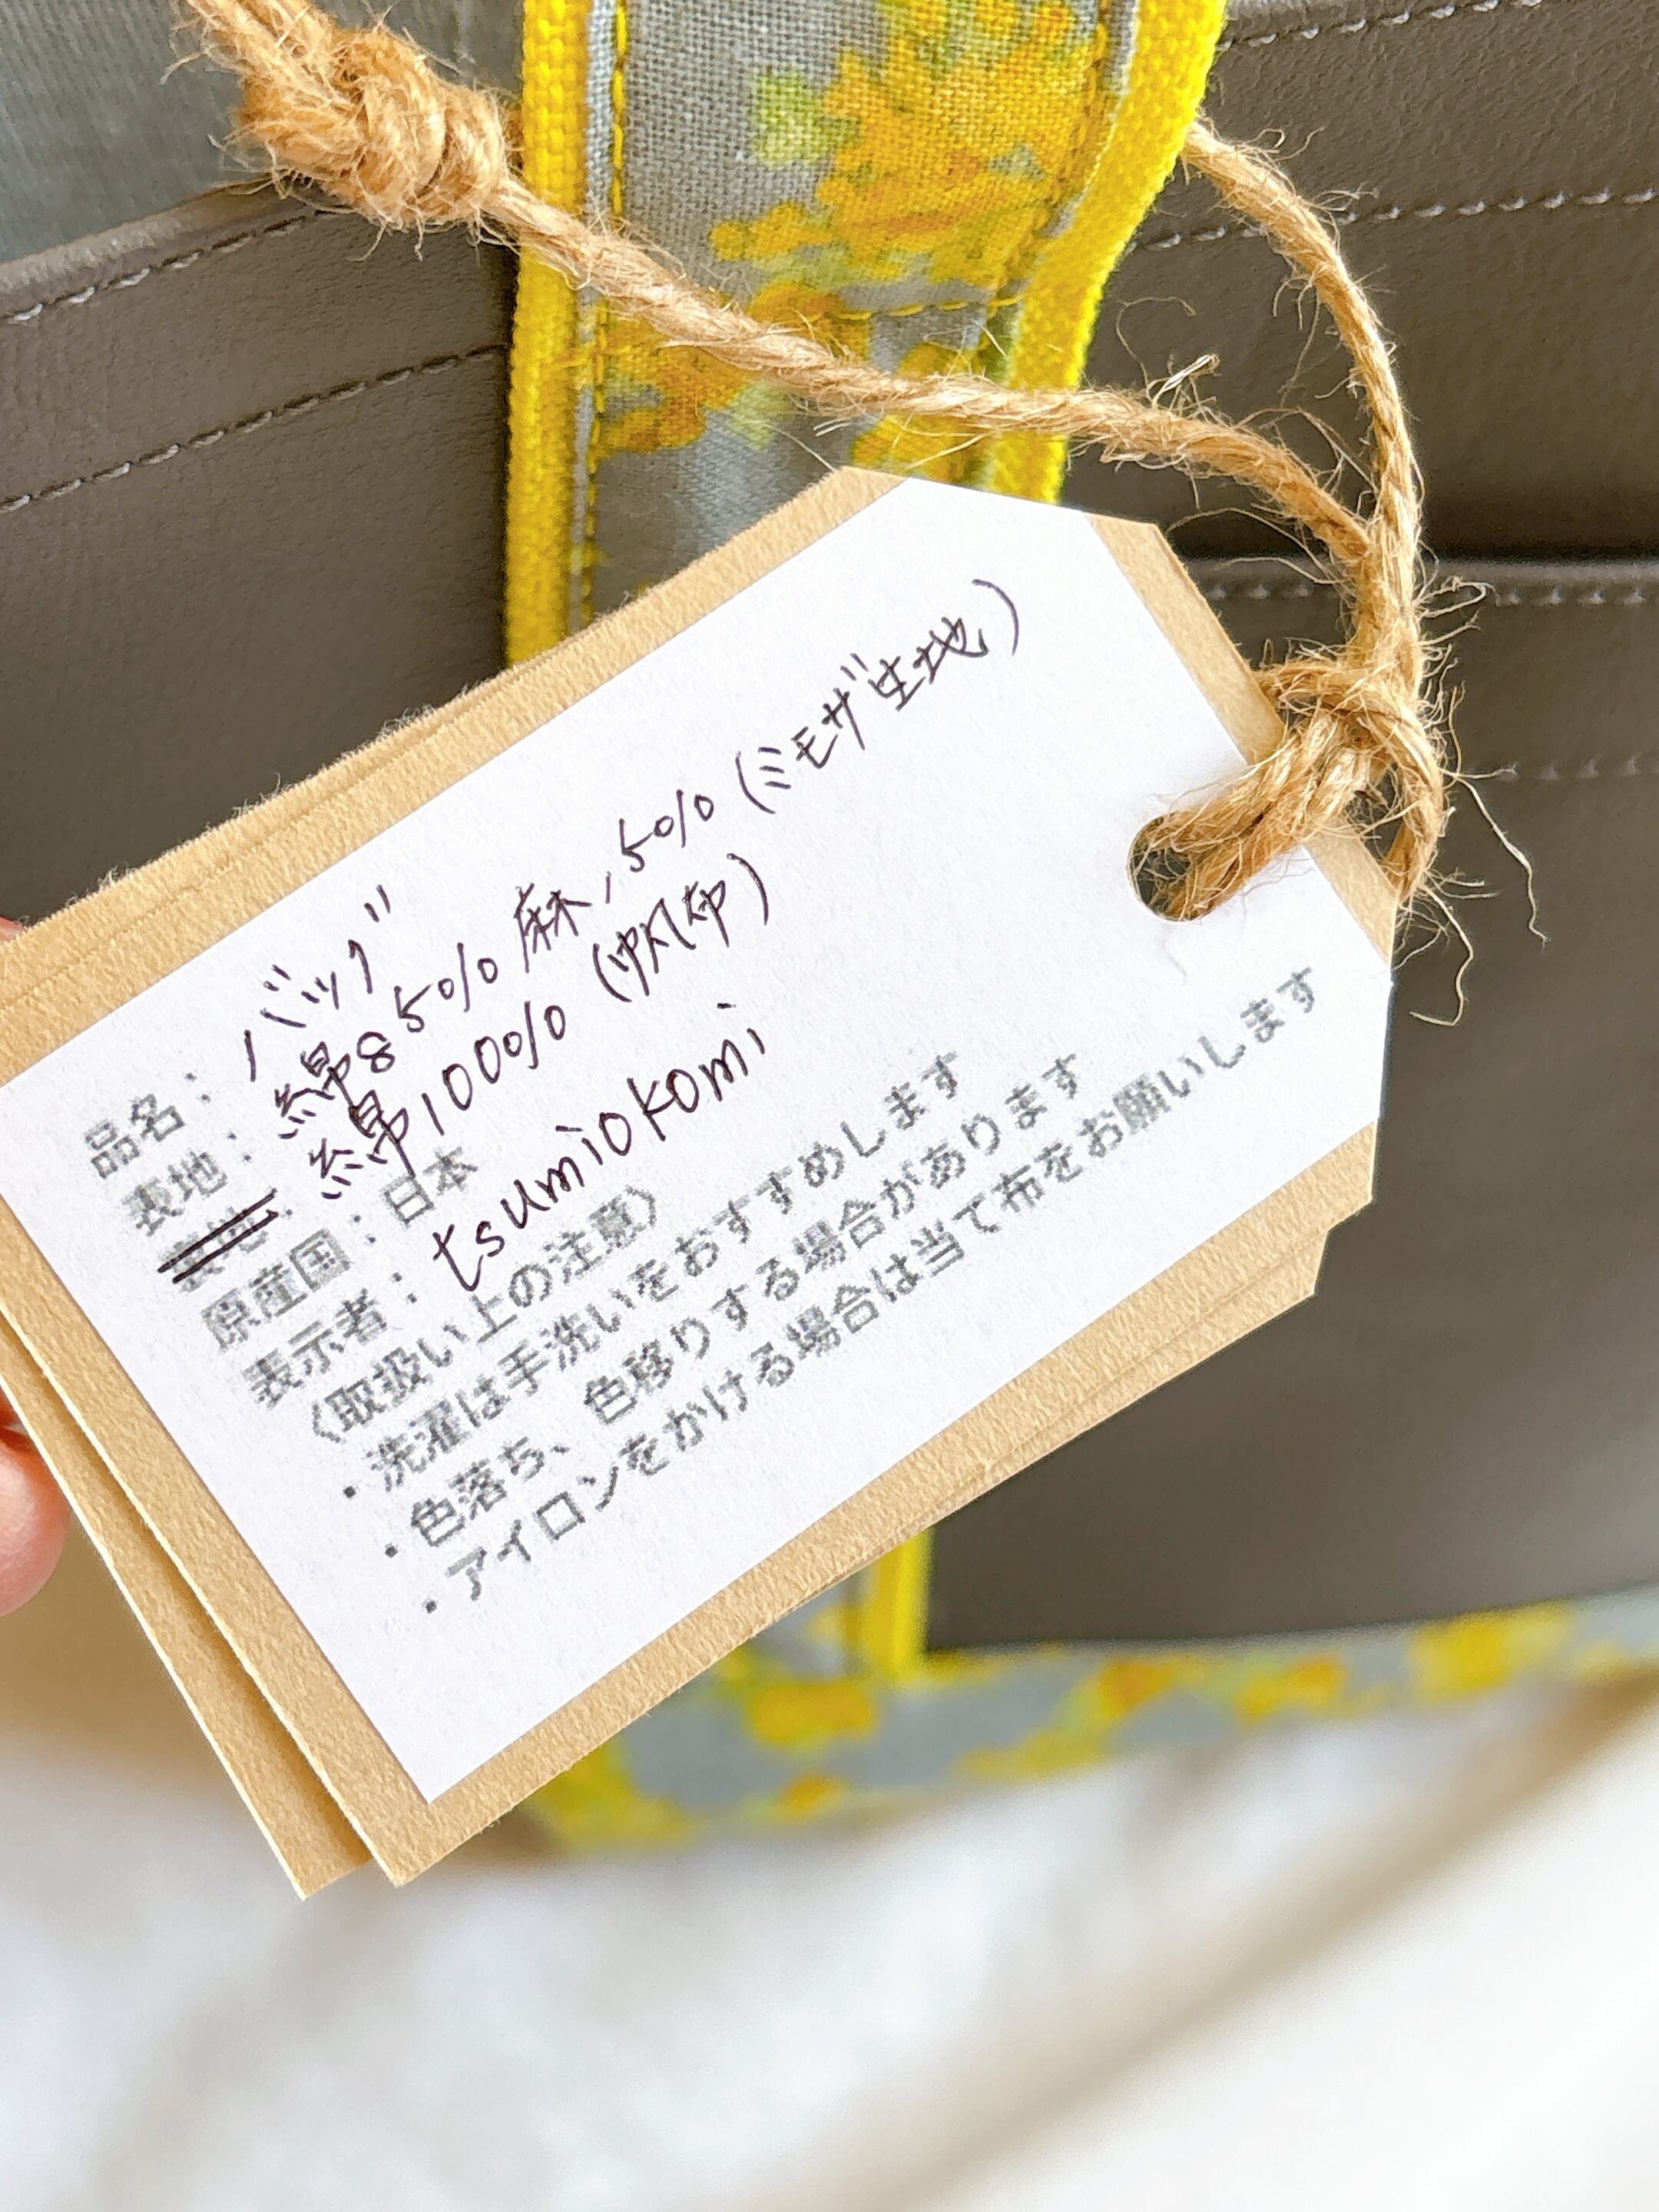 品名：バッグ
表地：綿85% 麻15%（ミモザ生地）
裏地：綿100%（帆布）
原産国：日本
表示者：tsumiokomi
〈取扱い上の注意〉
・洗濯は手洗いをおすすめします
・色落ち、色移りする場合があります
・アイロンをかける場合は当て布をお願いします